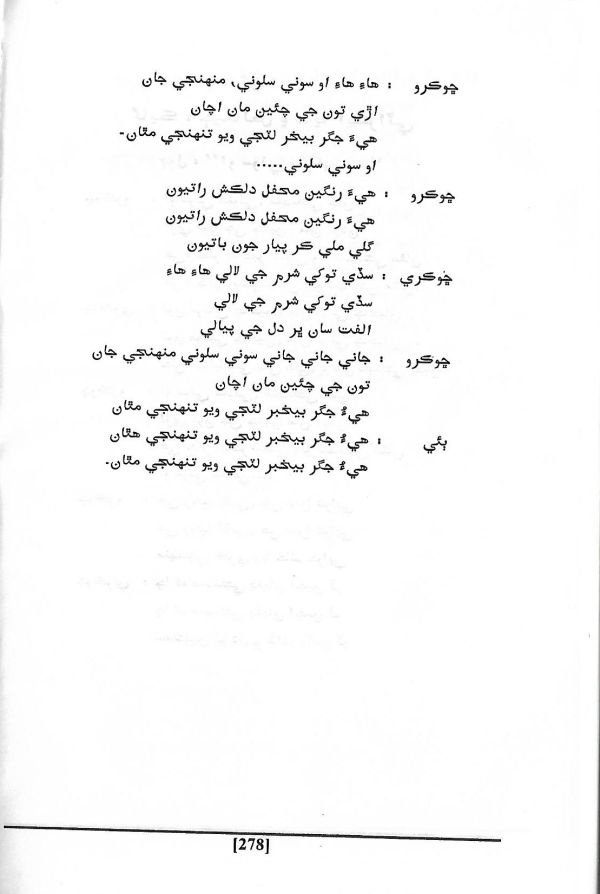 ڇوڪرو : هاءِ هاءِ او سوني سلوني، منهنجي جان
اڙي تون جي چئين مان اچان
هيءَ جگر بيخر لٽجي ويو تنهنجي مٿان-
او سوني سلوني.....
ڇوڪرو : هيءَ رنگين محفل دلڪش راتيون
هيءَ رنگين محفل دلڪش راتيون
گلي ملي ڪر پيار جون باتيون
ڇوڪري : سڏي توکي شرم جي لالي هاءِ هاءِ
سڏي توکي شرم جي لالي
الفت سان ڀر دل جي پيالي
ڇوڪرو : جاني جاني جاني سوني سلوني منهنجي جان
تون جي چئين مان اچان
هيءُ جگر بيخبر لٽجي ويو تنهنجي مٿان
ٻئي : هيءُ جگر بيخبر لٽجي ويو تنهنجي هٿان
هيءُ جگر بيخبر لٽجي ويو تنهنجي مٿان-
[278]